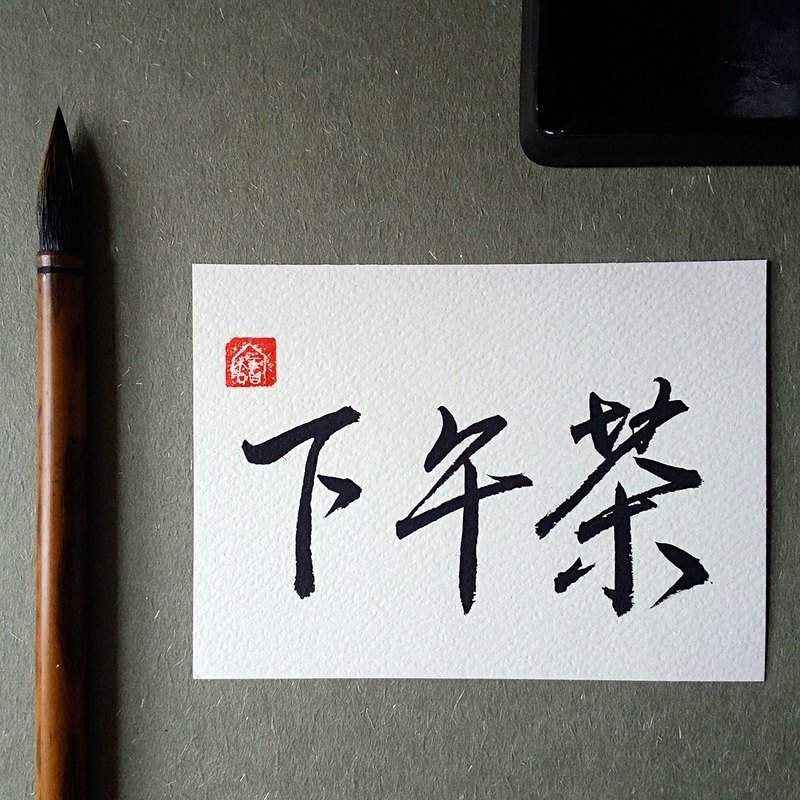 下午茶